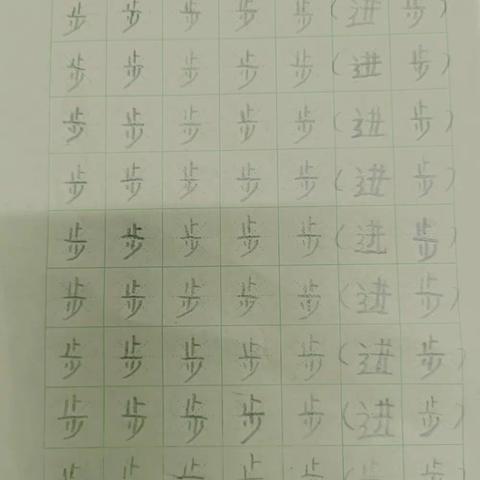 步步步步步(进步)
步步步步步(进步)
步步步步步(进步)
步步步步步(进步)
步步步步步(进步)
步步步步步(进步)
步步步步步(进步)
步步步步步(进步)